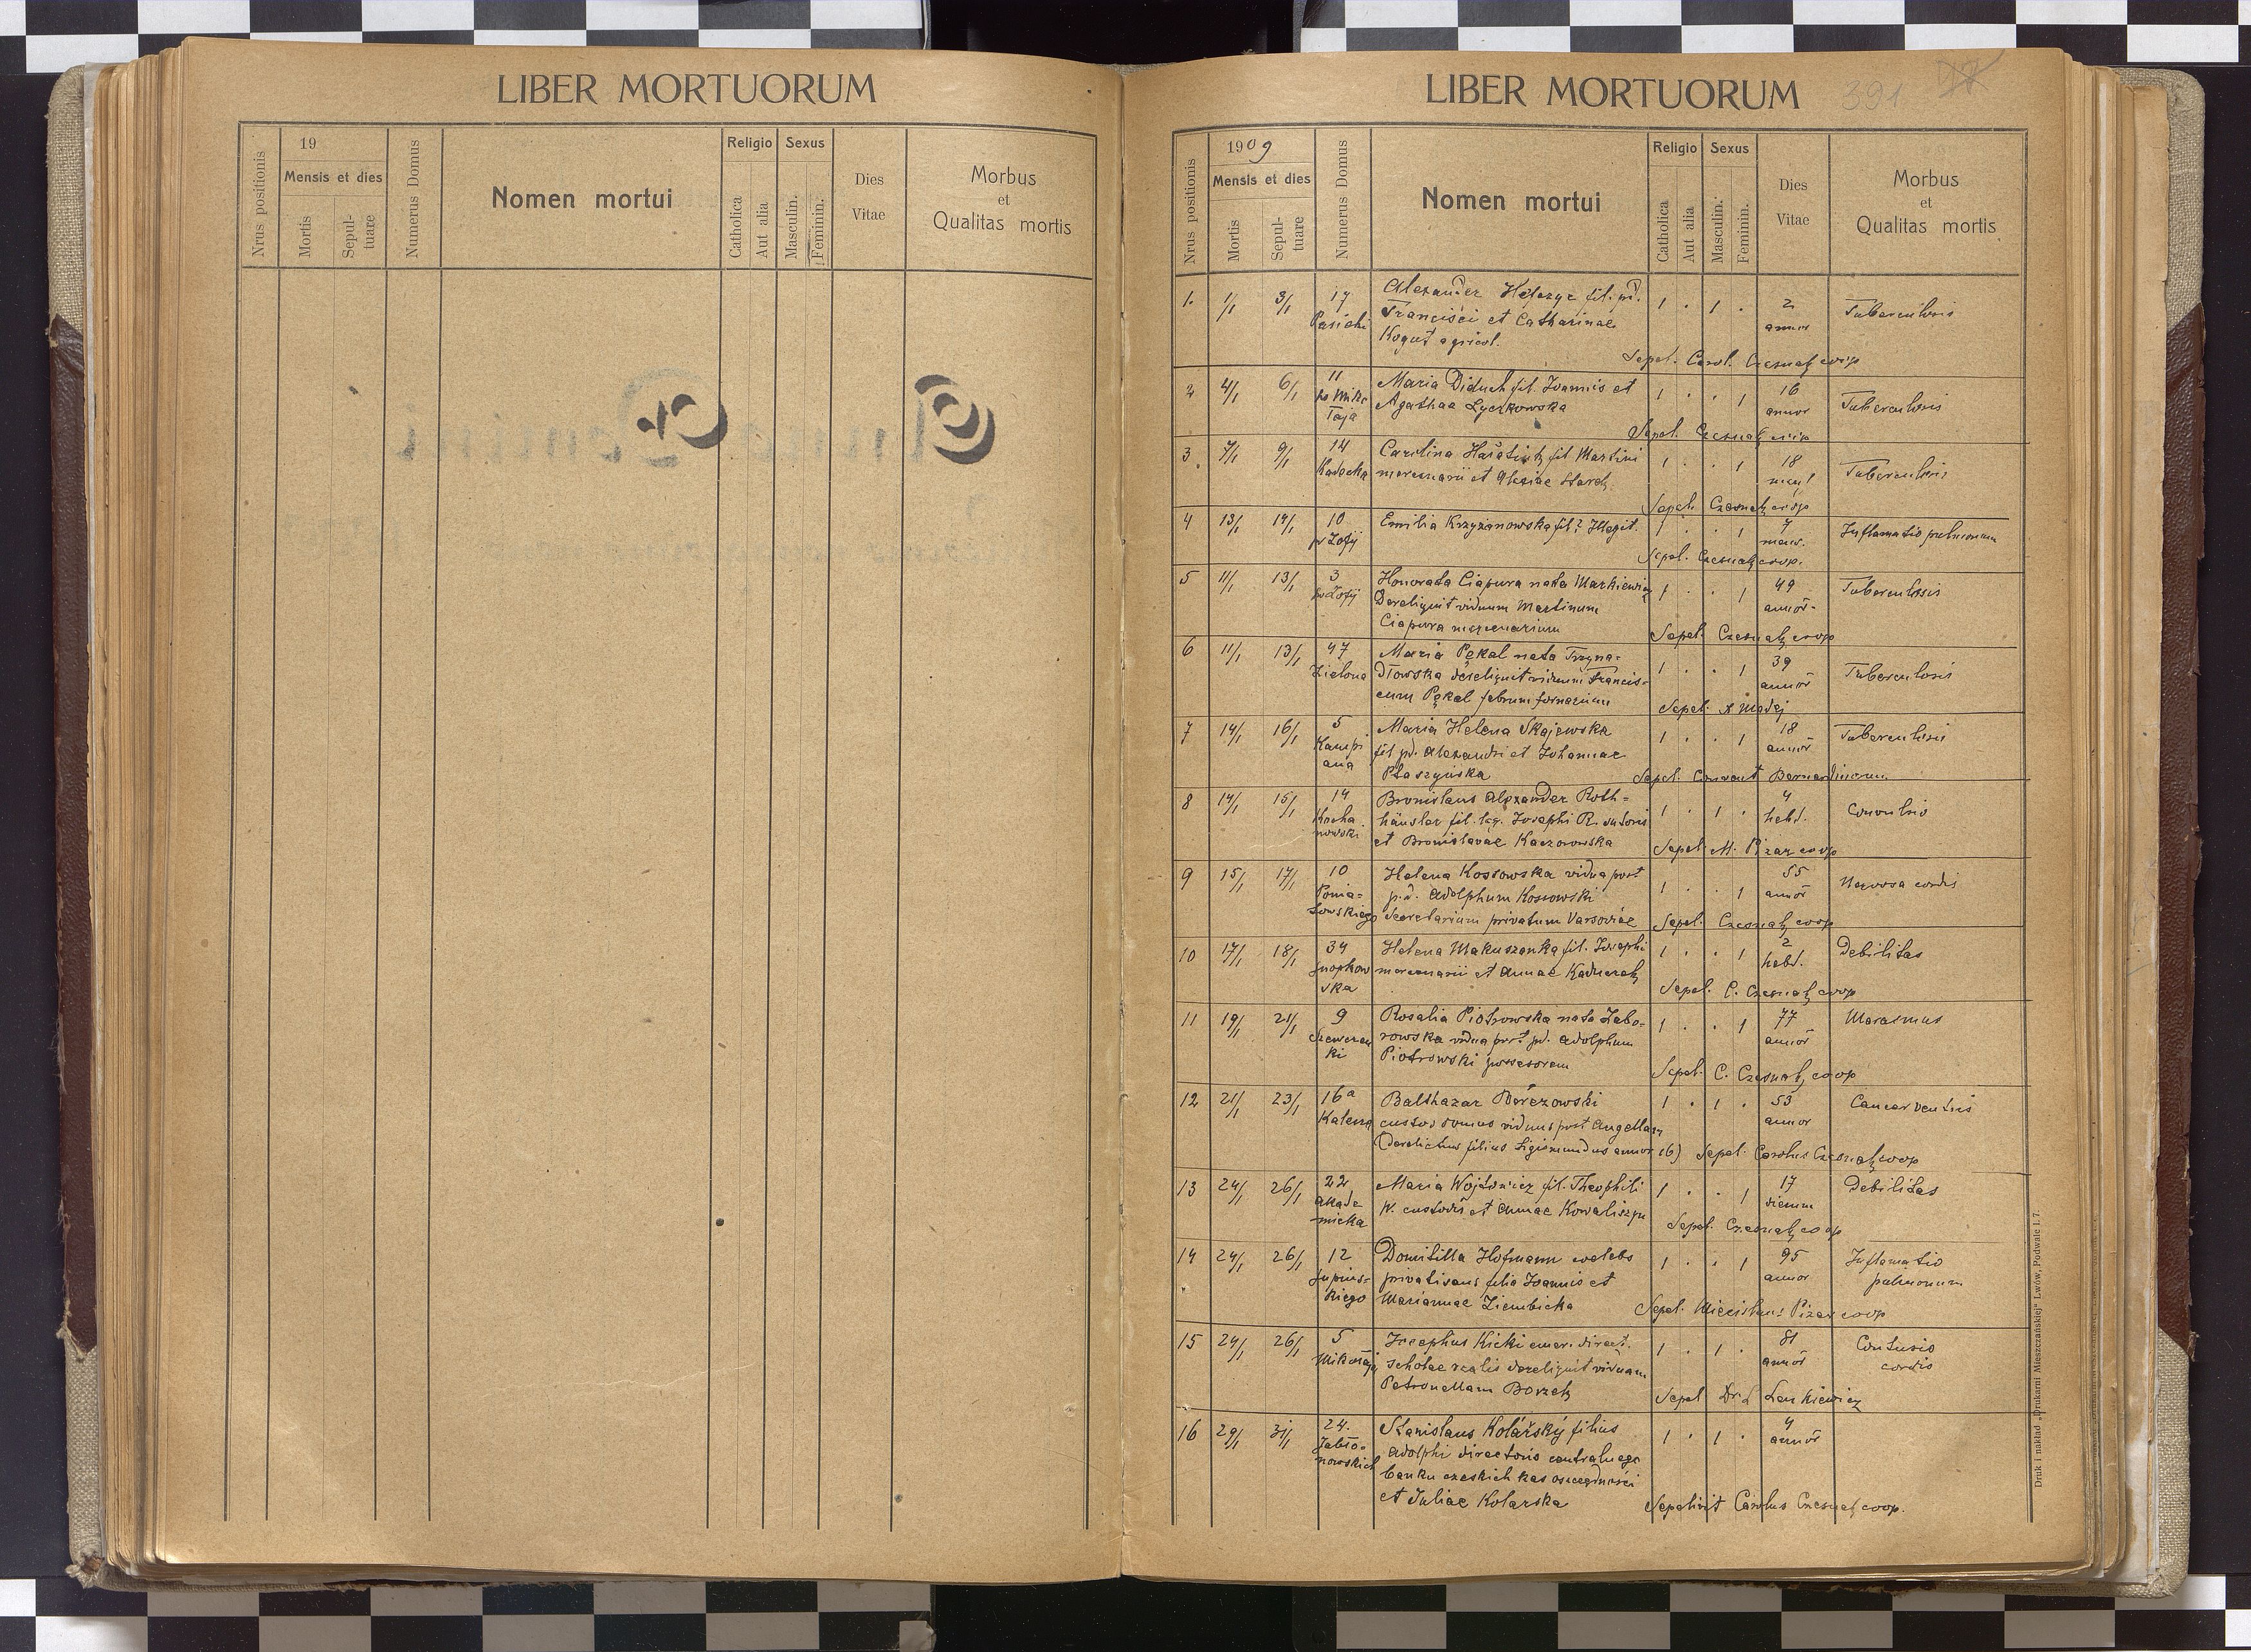 LIBER MORTUORUM
Nrus positionis
19
Mensis et dies
Mortis
Sepul-
tuare
Numerus Domus
Nomen mortui
Religio
Catholica
Aut alia
Sexus
Masculin.
Feminin.
Dies
Vitae
Morbus
et
Qualitas mortis
LIBER MORTUORUM
391
Nrus positionis
1909
Mensis et dies
Mortis
Sepul-
tuare
Numerus Domus
Nomen mortui
Religio
Catholica
Aut alia
Sexus
Masculin.
Feminin.
Dies
Vitae
Morbus
et
Qualitas mortis
1. 1/1 3/1 17 Alexander fil. pd. 1 . 1 . 2 Tuberculosis
Pasieki Francisci et Catharinae annor
Kogut agricol.
Sepel. Carol. Czesnak coop
2 4/1 6/1 11 Maria Diduch fil. Joannis et 1 . . 1 16 Tuberculosis
św Miko Agathae Lyczkowska annor
łaja
Sepel. Czesnak coop
3 7/1 9/1 14 Carolina fil Martini 1 . . 1 18 Tuberculosis
Kadecka mercenarii et
Sepel. Czesnak coop
4 13/1 14/1 10 Emilia Krzyżanowska fil? Illegit. 1 . . 1 7 Inflamatio pulmonum
św Zofij mens.
Sepel. Czesnak coop.
5 11/1 13/1 3 Honorata Ciapura nata Markiewicz 1 . . 1 49 Tuberculosis
św Zofij Dereliquit viduum Martinum annor
Ciapura mercenarium
Sepel. Czesnak coop
6 11/1 13/1 47 Maria Pękal nata Trzyna- 1 . . 1 39 Tuberculosis
Zielona dłowska dereliquit viduum Francis- annor
cum Pękal fabrum fornarium
Sepel. A Madej
7 14/1 16/1 5 Maria Helena Skajewska 1 . . 1 18 Tuberculosis
Kampi fil pd. Alexandri et Johannae annor
ana Ptaszyńska
Sepel. Convent Bernardinorum
8 14/1 15/1 14 Bronislaus Alexander Roth- 1 . 1 . 4 Convulsio
Kocha häusler fil. leg. Josephi R. sutoris hebd.
nowski et Bronislavae Kaczorowska
Sepel. M. Pizar coop
9 15/1 17/1 10 Helena Kossowska vidua post 1 . . 1 55 Nervosa cordis
Ponia- p.d. Adolphum Kossowski annor
towskiego Secretarium privatum Varsoviae
Sepel. Czesnak coop
10 17/1 18/1 34 Helena Makuszonka fil. Josephi 1 . . 1 2 Debilitas
Snopkow mercenarii et Annae hebd.
ska
Sepel. C. Czesnak coop
11 19/1 21/1 9 Rosalia Piotrowska nata Zabo- 1 . . 1 77 Marasmus
Szewczen rowska vidua post pd. Adolphum annor
ki Piotrowski possesorem
Sepel. C. Czesnak coop
12 21/1 23/1 16a Balthazar Berezowski 1 . 1 . 53 Cancer ventris
Kalecza custos domus viduus post Angellam annor
(derelictus filius Sigismundus annor 16) Sepel. Carolus Czesnak coop
13 24/1 26/1 22 Maria Wojtowicz fil. Theophili 1 . . 1 17 Debilitas
Akade W. custodis et Annae Kowaliszyn dierum
micka
Sepel. Czesnak coop
14 24/1 26/1 12 Domitilla Hofmann coelebs 1 . . 1 95 Inflamatio
Supińs- privatisans filia Joannis et annor pulmonum
kiego Mariannae Ziembicka
Sepel. Miecislaus Pizar coop
15 24/1 26/1 5 Josephus Kicki emer. direct. 1 . 1 . 81 Contusio
Mikołaja scholae realis dereliquit viduam annor cordis
Petronellam Borzek
Sepel Dr. L. Lenkiewicz
16 29/1 31/1 24. Stanislaus Kolářský filius 1 . 1 . 4
Jabło- Adolphi directoris centralnego annor
nowskich banku czeskich kas oszczędności
et Juliae Kolarska
Sepelivit Carolus Czesnak coop.
Druk i nakład „Drukarni Mieszczańskiej" Lwów, Podwale l. 7.